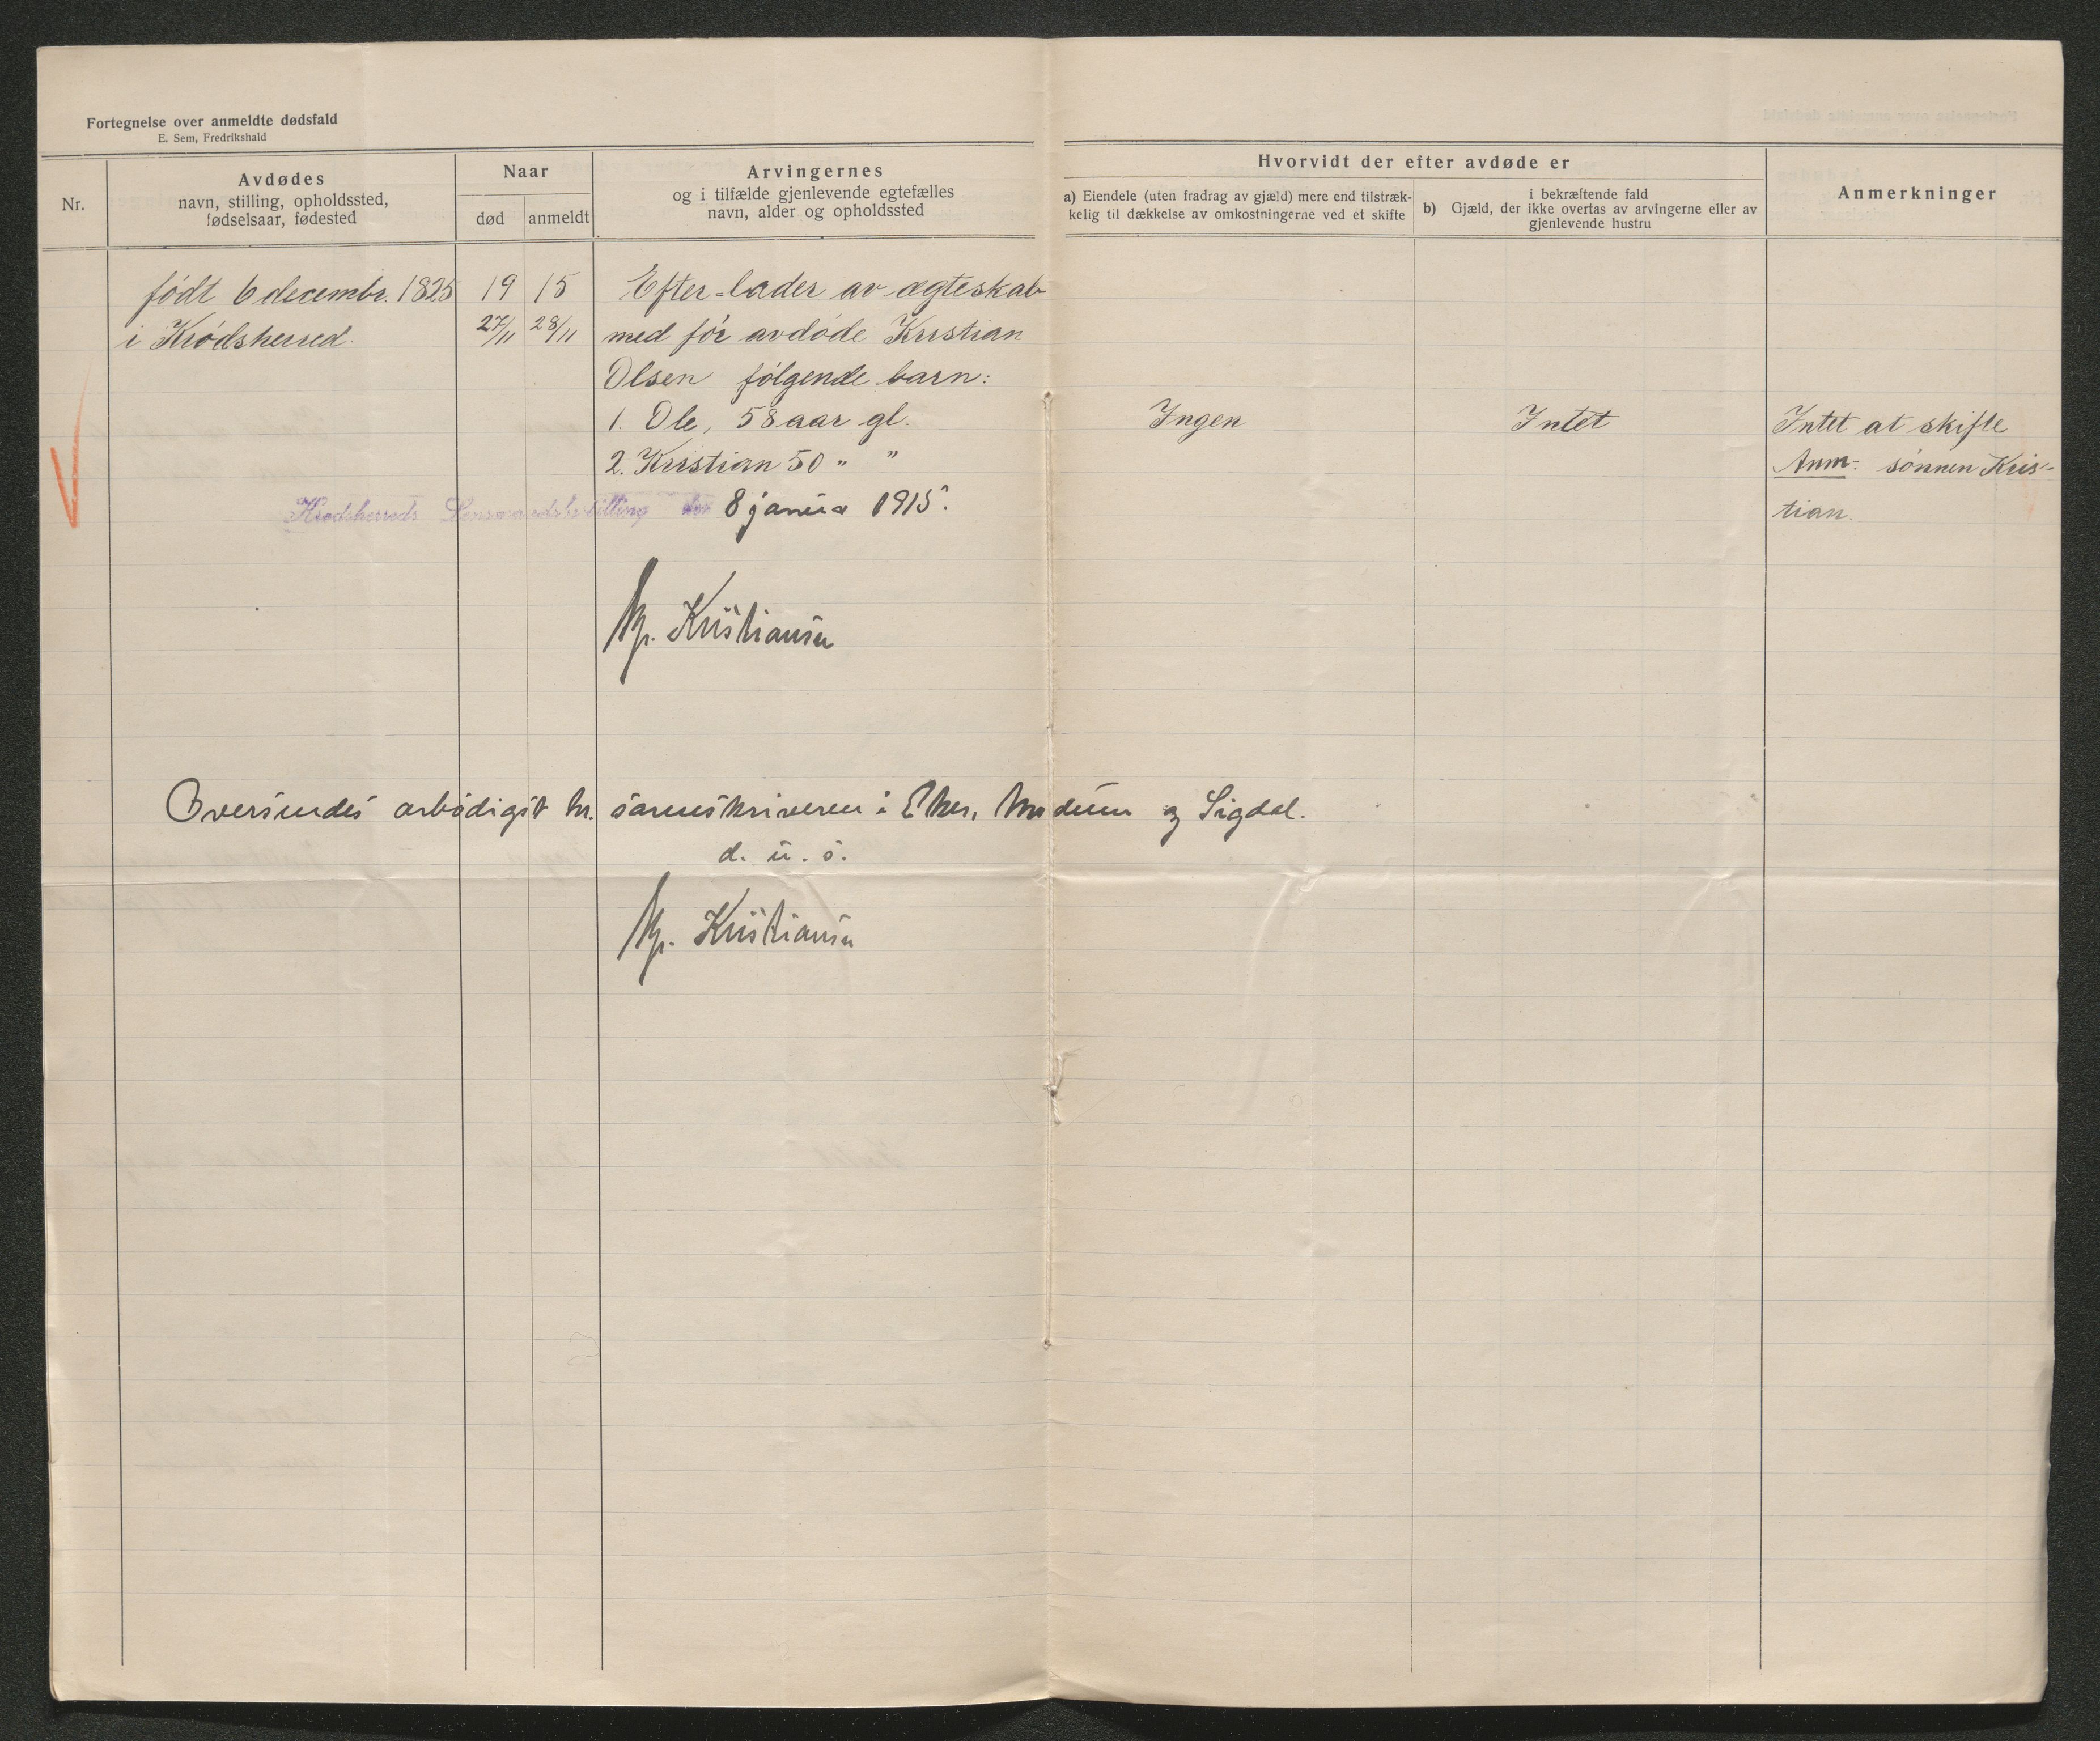 Fortegnelse over anmeldte dødsfald
E. Sem, Fredrikshald
Nr.
Avdødes
navn, stilling, opholdssted,
fødselsaar, fødested
Naar
død
anmeldt
Arvingernes
og i tilfælde gjenlevende egtefælles
navn, alder og opholdssted
Hvorvidt der efter avdøde er
a) Eiendele (uten fradrag av gjæld) mere end tilstræk-
kelig til dækkelse av omkostningerne ved et skifte
i bekræftende fald
b) Gjæld, der ikke overtas av arvingerne eller av
gjenlevende hustru
Anmerkninger
født 6 decembr. 1825 19 15 Efter-lader av ægteskab
i Krødsherred. 27/11 28/11 med før avdøde Kristian
Olsen følgende barn:
1. Ole, 58 aar gl. Ingen Intet Intet at skifte
2. Kristian 50 " " Anm. sønnen Kris-
tian.
Krødsherreds Lensmandsbestilling den 8 janua 1915.
Kristiansen
Oversendes ærbødigst hr. sorenskriveren i Eker, Modum og Sigdal.
d. u. s.
Kristiansen